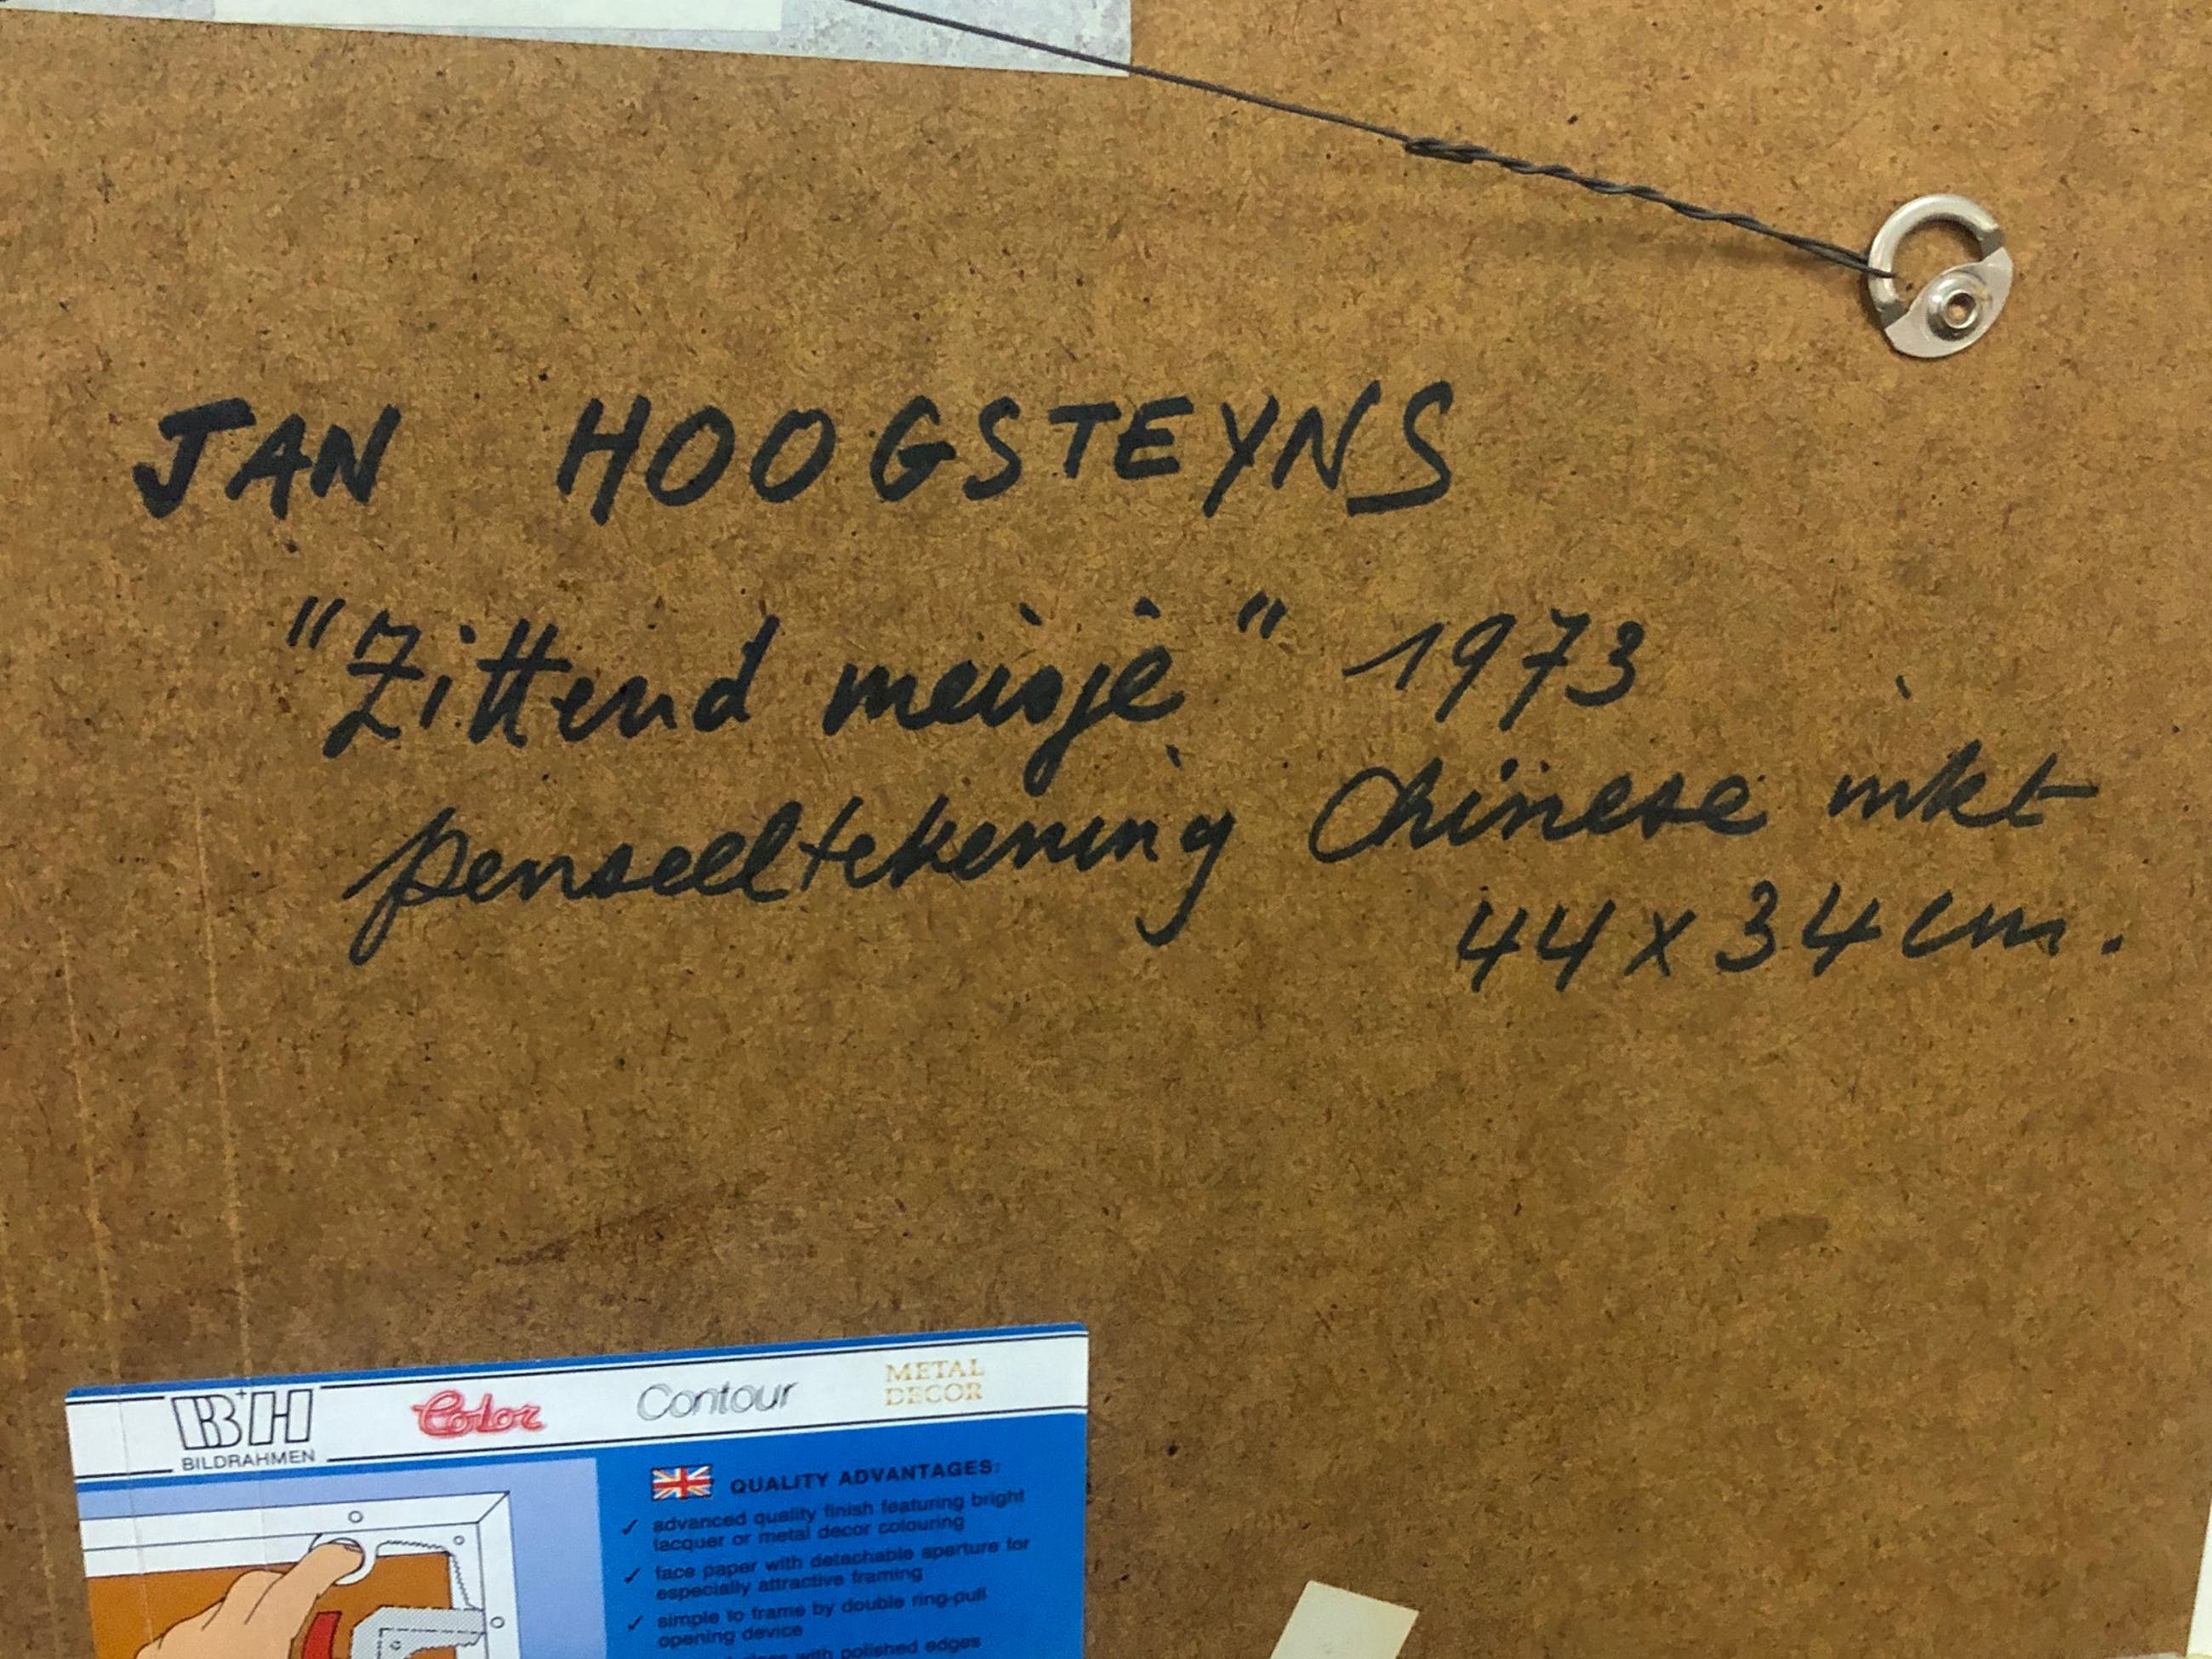 JAN HOOGSTEYNS
"Zittend meisje" 1973
penseeltekening Chinese inkt
44 x 34 cm.
B+H
BILDRAHMEN
Color
Contour
METAL
DECOR
QUALITY ADVANTAGES:
✓ advanced quality finish featuring bright
lacquer or metal decor colouring
✓ face paper with detachable aperture for
especially attractive framing
✓ simple to frame by double ring-pull
opening device
with polished edges